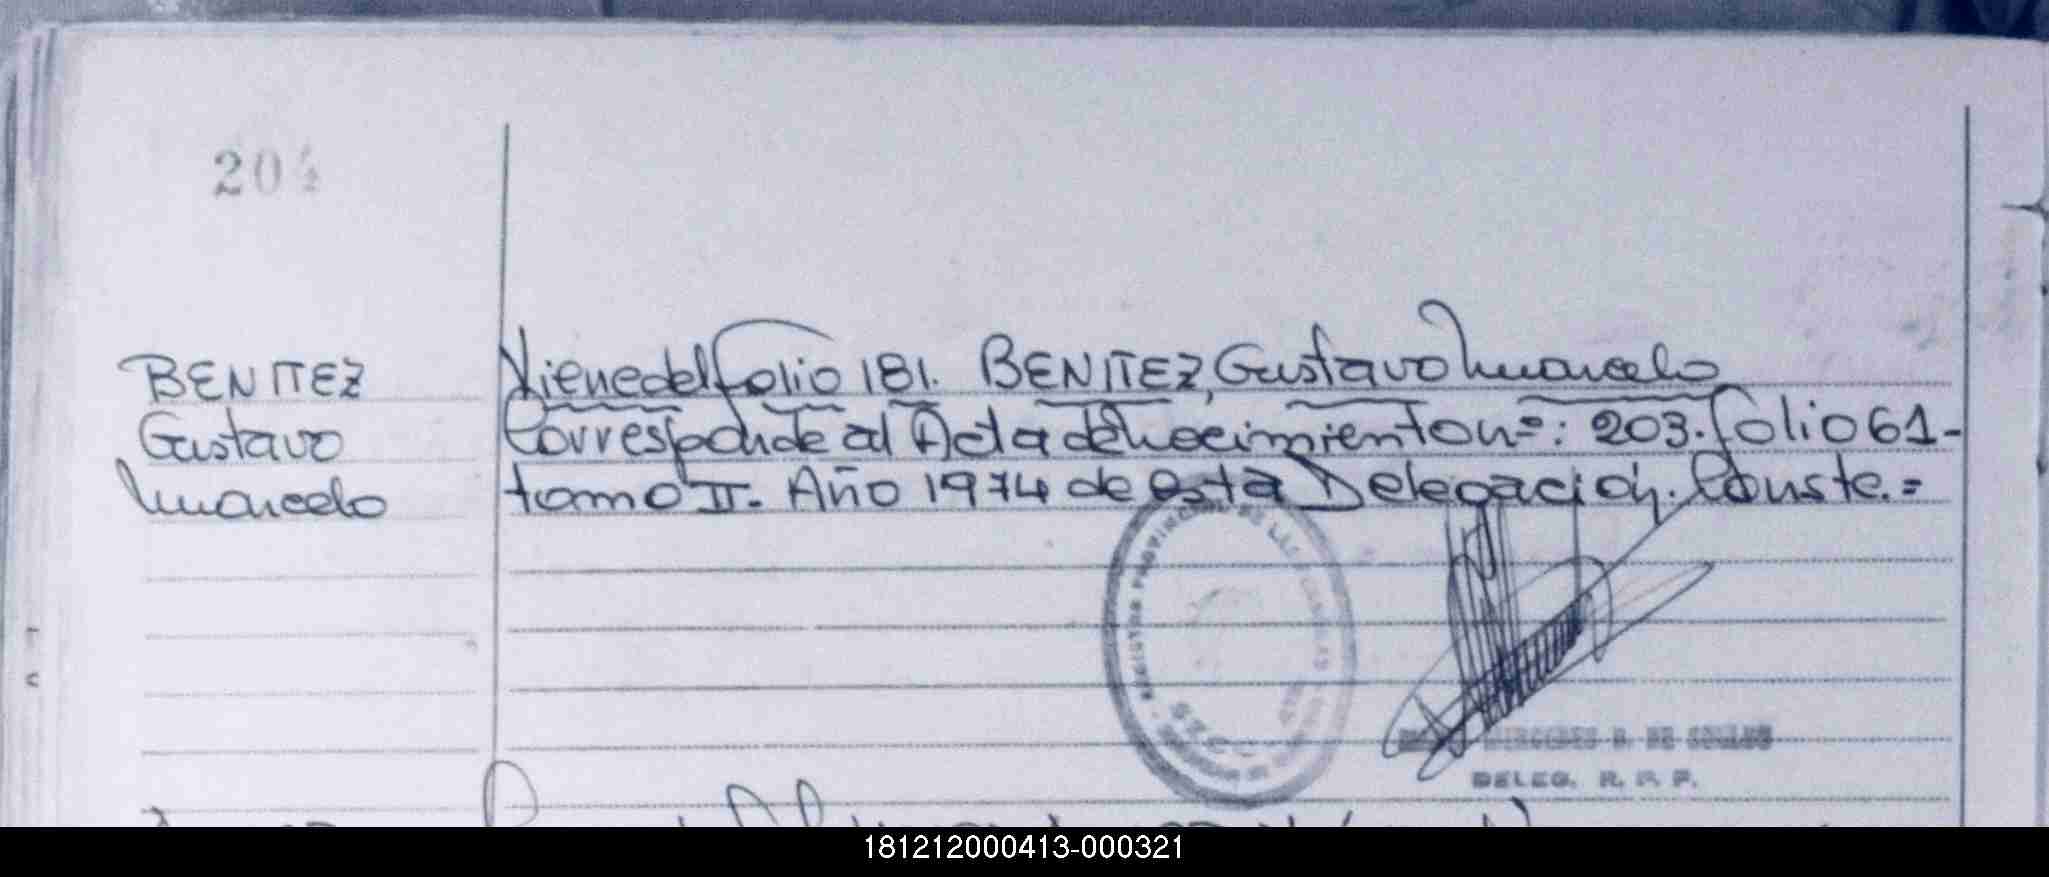 204
BENITEZ
Gustavo
Marcelo
Viene del folio 181. BENITEZ, Gustavo Marcelo
Corresponde al Acta de Nacimiento nº: 203. folio 61-
tomo II. Año 1974 de esta Delegación. Conste.=
REGISTRO PROVINCIAL DE LAS PERSONAS
DELEG. R. P. P.
181212000413-000321